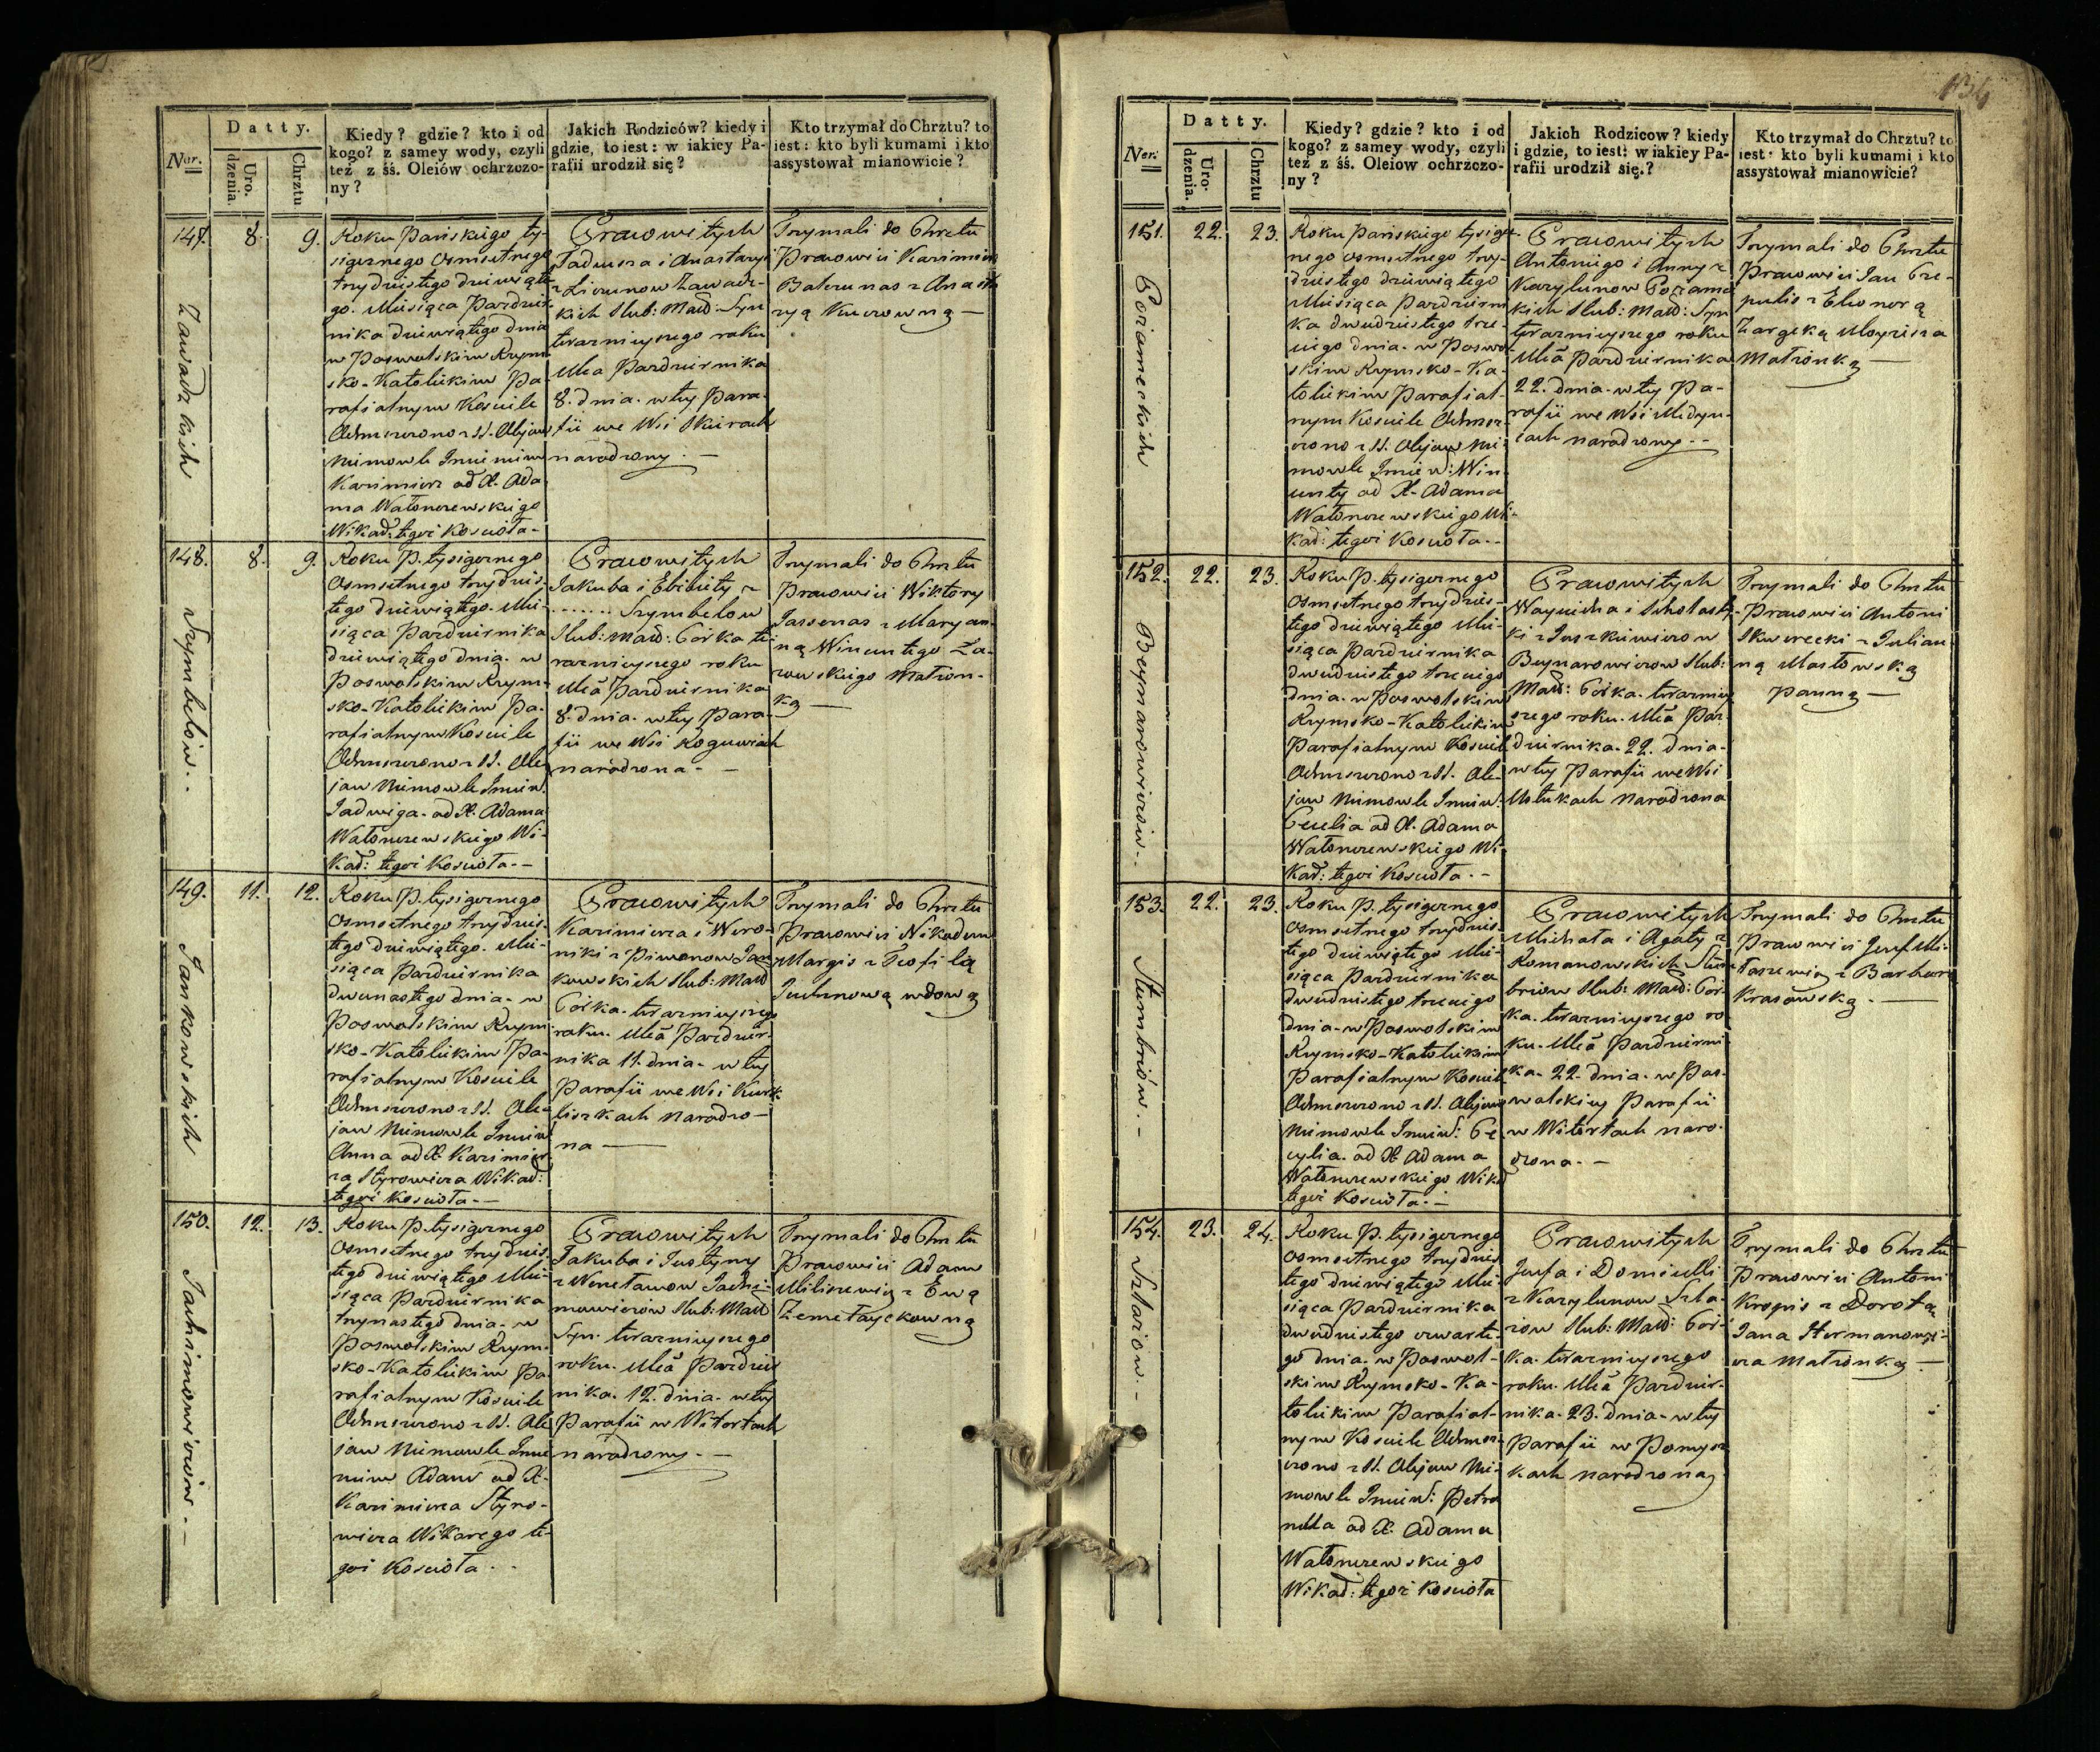 Datty.
Ner.
Uro-
dzenia.
Chrztu
Kiedy? gdzie? kto i od
kogo? z samey wody, czyli
też z śś. Oleiów ochrzczo-
ny?
Jakich Rodziców? kiedy i
gdzie, to iest: w iakiey Pa-
rafii urodził się?
Kto trzymał do Chrztu? to
iest: kto byli kumami i kto
assystował mianowicie?
147. 8. 9.
Zawadzkich
Roku Pańskiego ty-
siącznego osmsetnego
trzydziestego dziewiąte-
go. Miesiąca Paździer-
nika dziewiątego dnia
w Poswolskim Rzym-
sko-Katolickim Pa-
rafialnym Kosciele
Ochrzczono z SS. Olejow
Niemowle Imieniem
Kazimierz od X. Ada-
ma Watonczewskiego
Wikar: tegoż Kosciola-
Pracowitych
Tadeusza i Anastazyi
Zawadz-
kich Slub: Małż: Syn
terazniejszego roku
Mca Pazdziernika
8. dnia. w tej Para-
fii we Wsi Skierach
narodzony. -
Trzymali do Chrztu
Pracowici Kazimierz
Baterunas z
148. 8. 9.
Szymbelow.
Roku P. tysiącznego
Osmsetnego trzydzies-
tego dziewiątego. Mie-
siąca Pazdziernika
dziewiątego dnia. w
Poswolskim Rzym-
sko-Katolickim Pa-
rafialnym Kosciele
Ochrzczono z SS. Ole-
jow Niemowle Imien:
Jadwiga. od X. Adama
Watonczewskiego Wi-
kar: tegoż Kosciola.-
Pracowitych
Jakuba i Elżbiety z
....... Szymbelow
Slub: Małż: Corka te-
razniejszego roku
Mca Pazdziernika
8. dnia. w tej Para-
fii we Wsi Roguwiach
narodzona. -
Trzymali do Chrztu
Pracowici Wiktory
Jassenas z Maryan-
ną Wincentego
Matron-
ką -
149. 11. 12.
Jankowskich
Roku P. tysiącznego
Osmsetnego trzydzies-
tego dziewiątego. Mie-
siąca Pazdziernika
dwunastego dnia. w
Poswolskim Rzym-
sko-Katolickim Pa-
rafialnym Kosciele
Ochrzczono z SS. Ole-
jow Niemowle Imien
Anna od X. Kazimie-
rza Styrowicza Wikar:
tegoż Kosciola.-
Pracowitych
Kazimierza i Wero-
niki z Piwonow Jan-
kowskich Slub: Małż
Corka. terazniejszego
roku. Mca Pazdzier-
nika 11. dnia. w tej
Parafii we Wsi
narodzo-
na -
Trzymali do Chrztu
Pracowici Nikodem
Margis z Teofilą
wdową
150. 12. 13.
Jachimowiczow. -
Roku P. tysiącznego
Osmsetnego trzydzies-
tego dziewiątego Mie-
siąca Pazdziernika
trzynastego dnia. w
Poswolskim Rzym-
sko-Katolickim Pa-
rafialnym Kosciele
Ochrzczono z SS. Ole-
jow Niemowle Imie-
niem Adam od X.
Kazimierza Styro-
wicza Wikarego te-
goż Kosciola. -
Pracowitych
Jakuba i Justyny
z Jachi-
mowiczow Slub: Małż
Syn. terazniejszego
roku. Mca Pazdzier
nika. 12. dnia. w tej
Parafii w Witortach
narodzony. -
Trzymali do Chrztu
Pracowici Adam
Miliszewicz z Ewą
136
Datty.
Ner.
Uro-
dzenia.
Chrztu
Kiedy? gdzie? kto i od
kogo? z samey wody, czyli
też z śś. Oleiow ochrzczo-
ny?
Jakich Rodzicow? kiedy
i gdzie, to iest: w iakiey Pa-
rafii urodził się.?
Kto trzymał do Chrztu? to
iest: kto byli kumami i kto
assystował mianowicie?
151. 22. 23.
Pożameckich
Roku Pańskiego tysiącz-
nego osmsetnego trzy-
dziestego dziewiątego
Miesiąca Pazdzierni
ka dwudziestego trze-
ciego dnia. w Poswol-
skim Rzymsko-Ka-
tolickim Parafial-
nym Kosciele Ochrz-
czono z SS. Olejow Nie-
mowle Imien: Win-
centy od X. Adama
Watonczewskiego Wi-
kar: tegoż Kosciola.-
Pracowitych
Antoniego i Anny z
Karylunow Pożamec
kich Slub: Małż: Syn
terazniejszego roku
Mca Pazdziernika
22. dnia. w tej Pa-
rafii we Wsi
narodzony. -
Trzymali do Chrztu
Pracowici Jan
z Eleonorą
Matronką -
152. 22. 23.
Beynarowiczow.
Roku P. tysiącznego
Osmsetnego trzydzies-
tego dziewiątego Mie-
siąca Pazdziernika
dwudziestego trzeciego
dnia. w Poswolskim
Rzymsko-Katolickim
Parafialnym Kosciele
Ochrzczono z SS. Ole-
jow Niemowle Imien:
Cecelia od X. Adama
Watonczewskiego Wi-
kar: tegoż Kosciola. -
Pracowitych
Woyciecha i Scholasty-
ki z Juszkiewiczow
Beynarowiczow Slub:
Małż: Corka. terazniey
szego roku. Mca Paz-
dziernika. 22. dnia.
w tej Parafii we Wsi
narodzona
Trzymali do Chrztu
Pracowici Antoni
Skworecki z Julian-
ną Masłowską
Panną -
153. 22. 23.
Stumbriów. -
Roku P. tysiącznego
Osmsetnego trzydzies-
tego dziewiątego Mie-
siąca Pazdziernika
dwudziestego trzeciego
dnia. w Poswolskim
Rzymsko-Katolickim
Parafialnym Kosciele
Ochrzczono z SS. Olejow
Niemowle Imien: Ce-
cylia. od X. Adama
Watonczewskiego Wikar
tegoż Kosciola.-
Pracowitych
Michała i Agaty z
Romanowskich Stum-
briow Slub: Małż: Cor-
ka. terazniejszego ro-
ku. Mca Pazdzierni
ka. 22. dnia. w Pos-
wolskiey Parafii
w Witortach naro-
dzona. -
Trzymali do Chrztu
Pracowici Jozef Mi-
łaszewicz z Barbarą
Krasowską. -
154. 23. 24.
Szlaziow. -
Roku P. tysiącznego
Osmsetnego trzydzies
tego dziewiątego Mie-
siąca Pazdziernika
dwudziestego czwarte-
go dnia. w Poswol-
skim Rzymsko-Ka-
tolickim Parafial-
nym Kosciele Ochrz-
czono z SS. Olejow Nie-
mowle Imien: Petro
nella od X. Adama
Watonczewskiego
Wikar: tegoż Kosciola
Pracowitych
Jozefa i Domicelli
z Karylunow Szla-
ziow Slub: Małż: Cor-
ka. terazniejszego
roku. Mca Pazdzier-
nika. 23. dnia. w tej
Parafii w
narodzona
Trzymali do Chrztu
Pracowici Antoni
Kropis z Dorotą
Jana Hermanowi-
cza Matronką. -